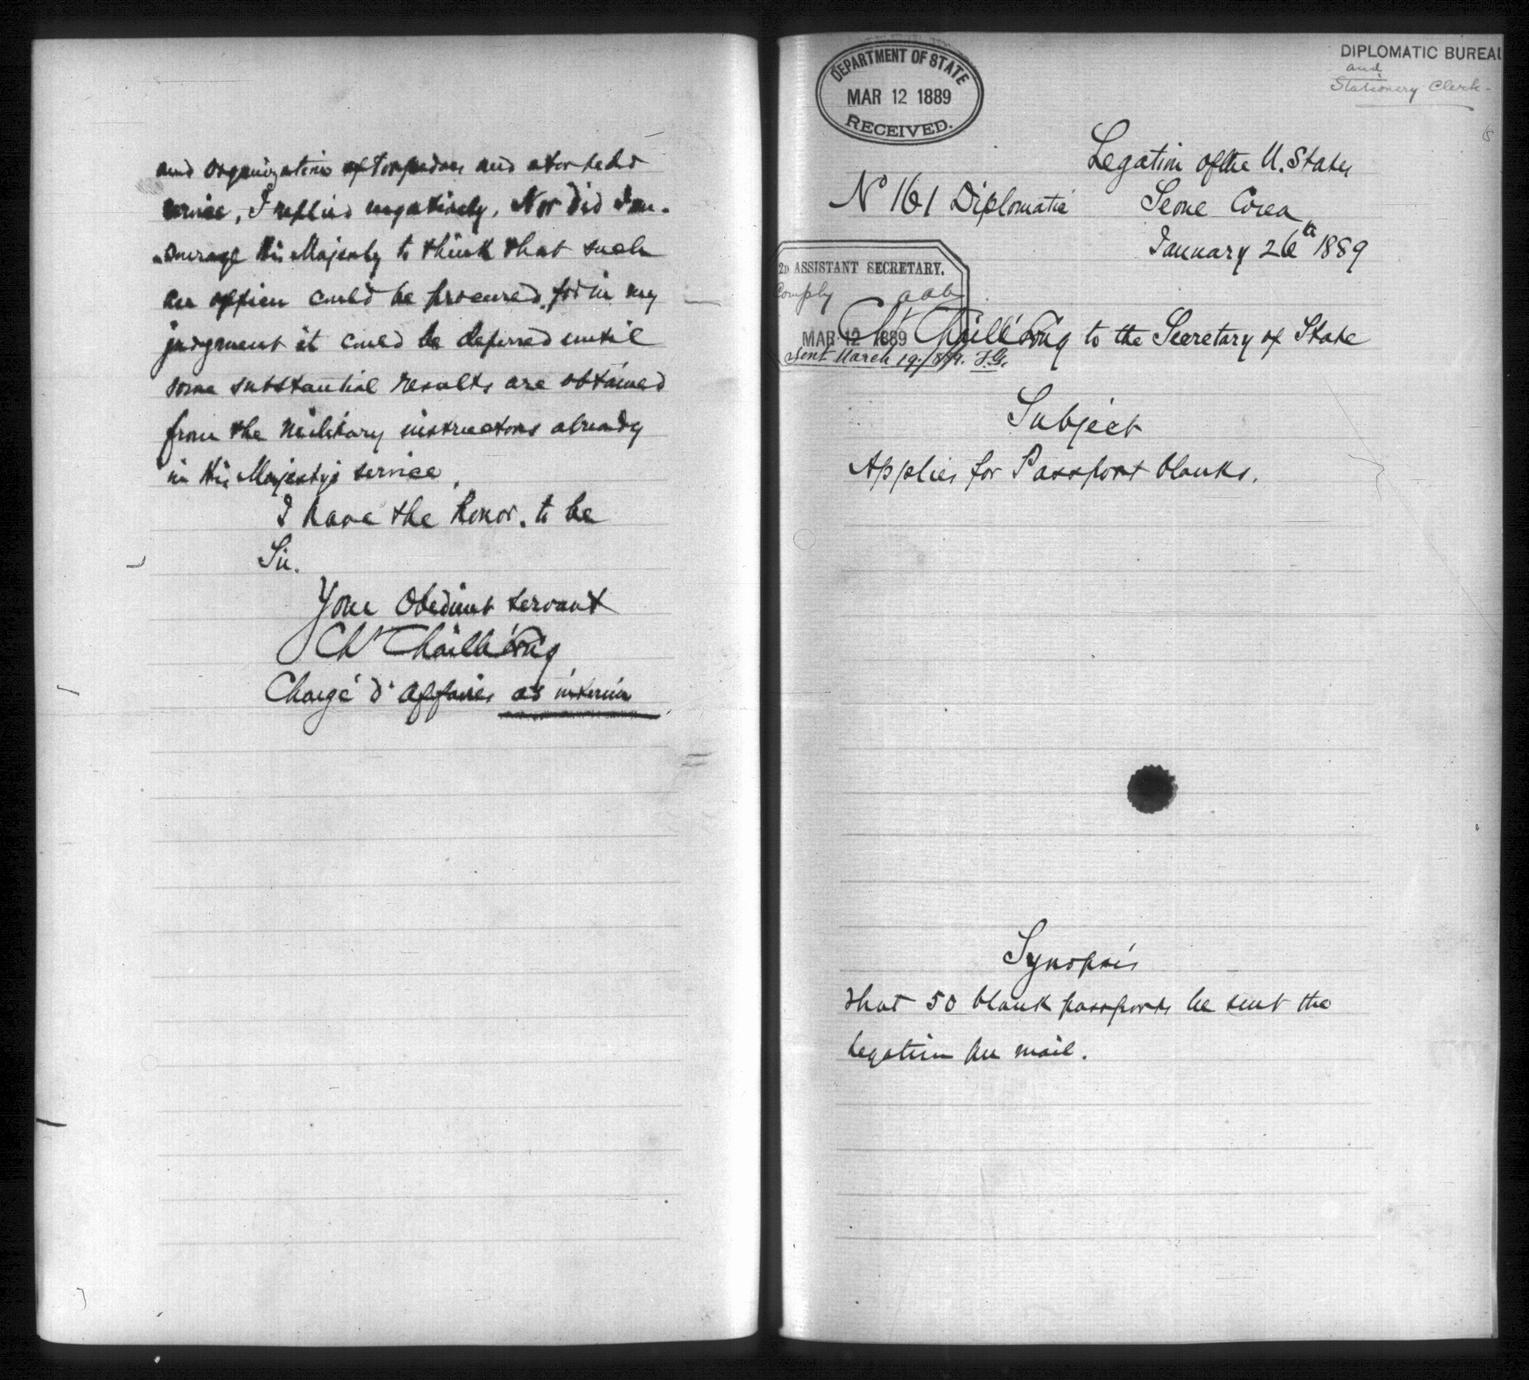 and organization of torpedoes and
service, I replied negatively. Nor did I en-
-courage His Majesty to think that such
an officer could be procured, for in my
judgment it could be deferred until
some substantial results are obtained
from the military instructors already
in His Majesty's service.
I have the honor, to be
Sir.
Your Obedient servant
Ch. Chaillé Long
Chargé d'Affaires ad interim
DEPARTMENT OF STATE
MAR 12 1889
RECEIVED.
DIPLOMATIC BUREAU
and
Stationery Clerk.
Legation of the U. States
No 161 Diplomatic
Seoul Corea,
January 26th 1889
2D ASSISTANT SECRETARY.
Comply aaa
MAR 12 1889
Sent March 19/89. J.G.
Ch. Chaillé Long to the Secretary of State
Subject
Applies for Passport blanks.
Synopsis
that 50 blank passports be sent the
legation per mail.